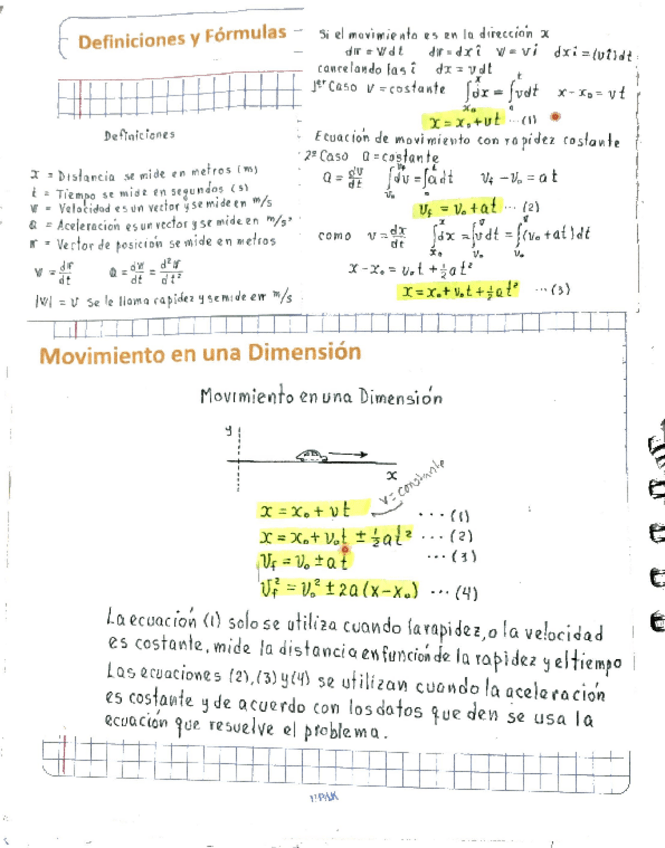 Definiciones y Fórmulas
Definiciones
x = Distancia se mide en metros (m)
t = Tiempo se mide en segundos (s)
v = Velocidad es un vector y se mide en m/s
a = Aceleración es un vector y se mide en m/s²
r = Vector de posición se mide en metros
v = dr/dt a = dv/dt = d²r/dt²
|v| = v se le llama rapidez y se mide en m/s
Si el movimiento es en la dirección x
dr = v dt dr = dx î v = v î dx î = (v î) dt
cancelando las î dx = v dt
1er Caso v = costante ∫dx = ∫v dt x - x₀ = v t
x = x₀ + v t ... (1)
Ecuación de movimiento con rapidez costante
2º Caso a = costante
a = dv/dt ∫dv = ∫a dt v_f - v₀ = a t
v_f = v₀ + a t ... (2)
como v = dx/dt ∫dx = ∫v dt = ∫(v₀ + at) dt
x - x₀ = v₀ t + ½ a t²
x = x₀ + v₀ t + ½ a t² ... (3)
Movimiento en una Dimensión
Movimiento en una Dimensión
y
x
v = constante
x = x₀ + v t ... (1)
x = x₀ + v₀ t ± ½ a t² ... (2)
v_f = v₀ ± a t ... (3)
v_f² = v₀² ± 2a (x - x₀) ... (4)
La ecuación (1) solo se utiliza cuando la rapidez, o la velocidad
es costante, mide la distancia en función de la rapidez y el tiempo
Las ecuaciones (2), (3) y (4) se utilizan cuando la aceleración
es costante y de acuerdo con los datos que den se usa la
ecuación que resuelve el problema.